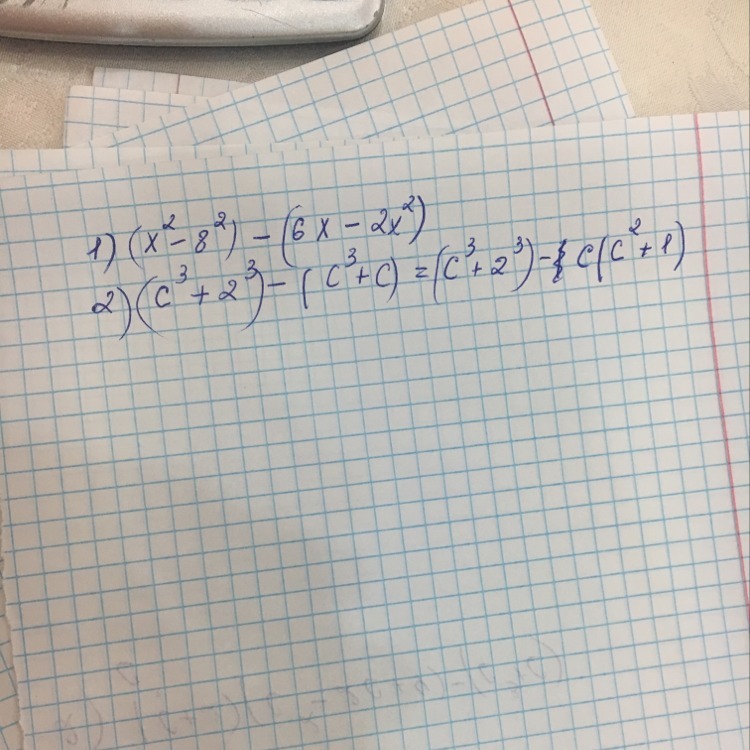 1) (x² - 8²) - (6x - 2x²)
2) (c³ + 2³) - (c³ + c) = (c³ + 2³) - c(c² + 1)